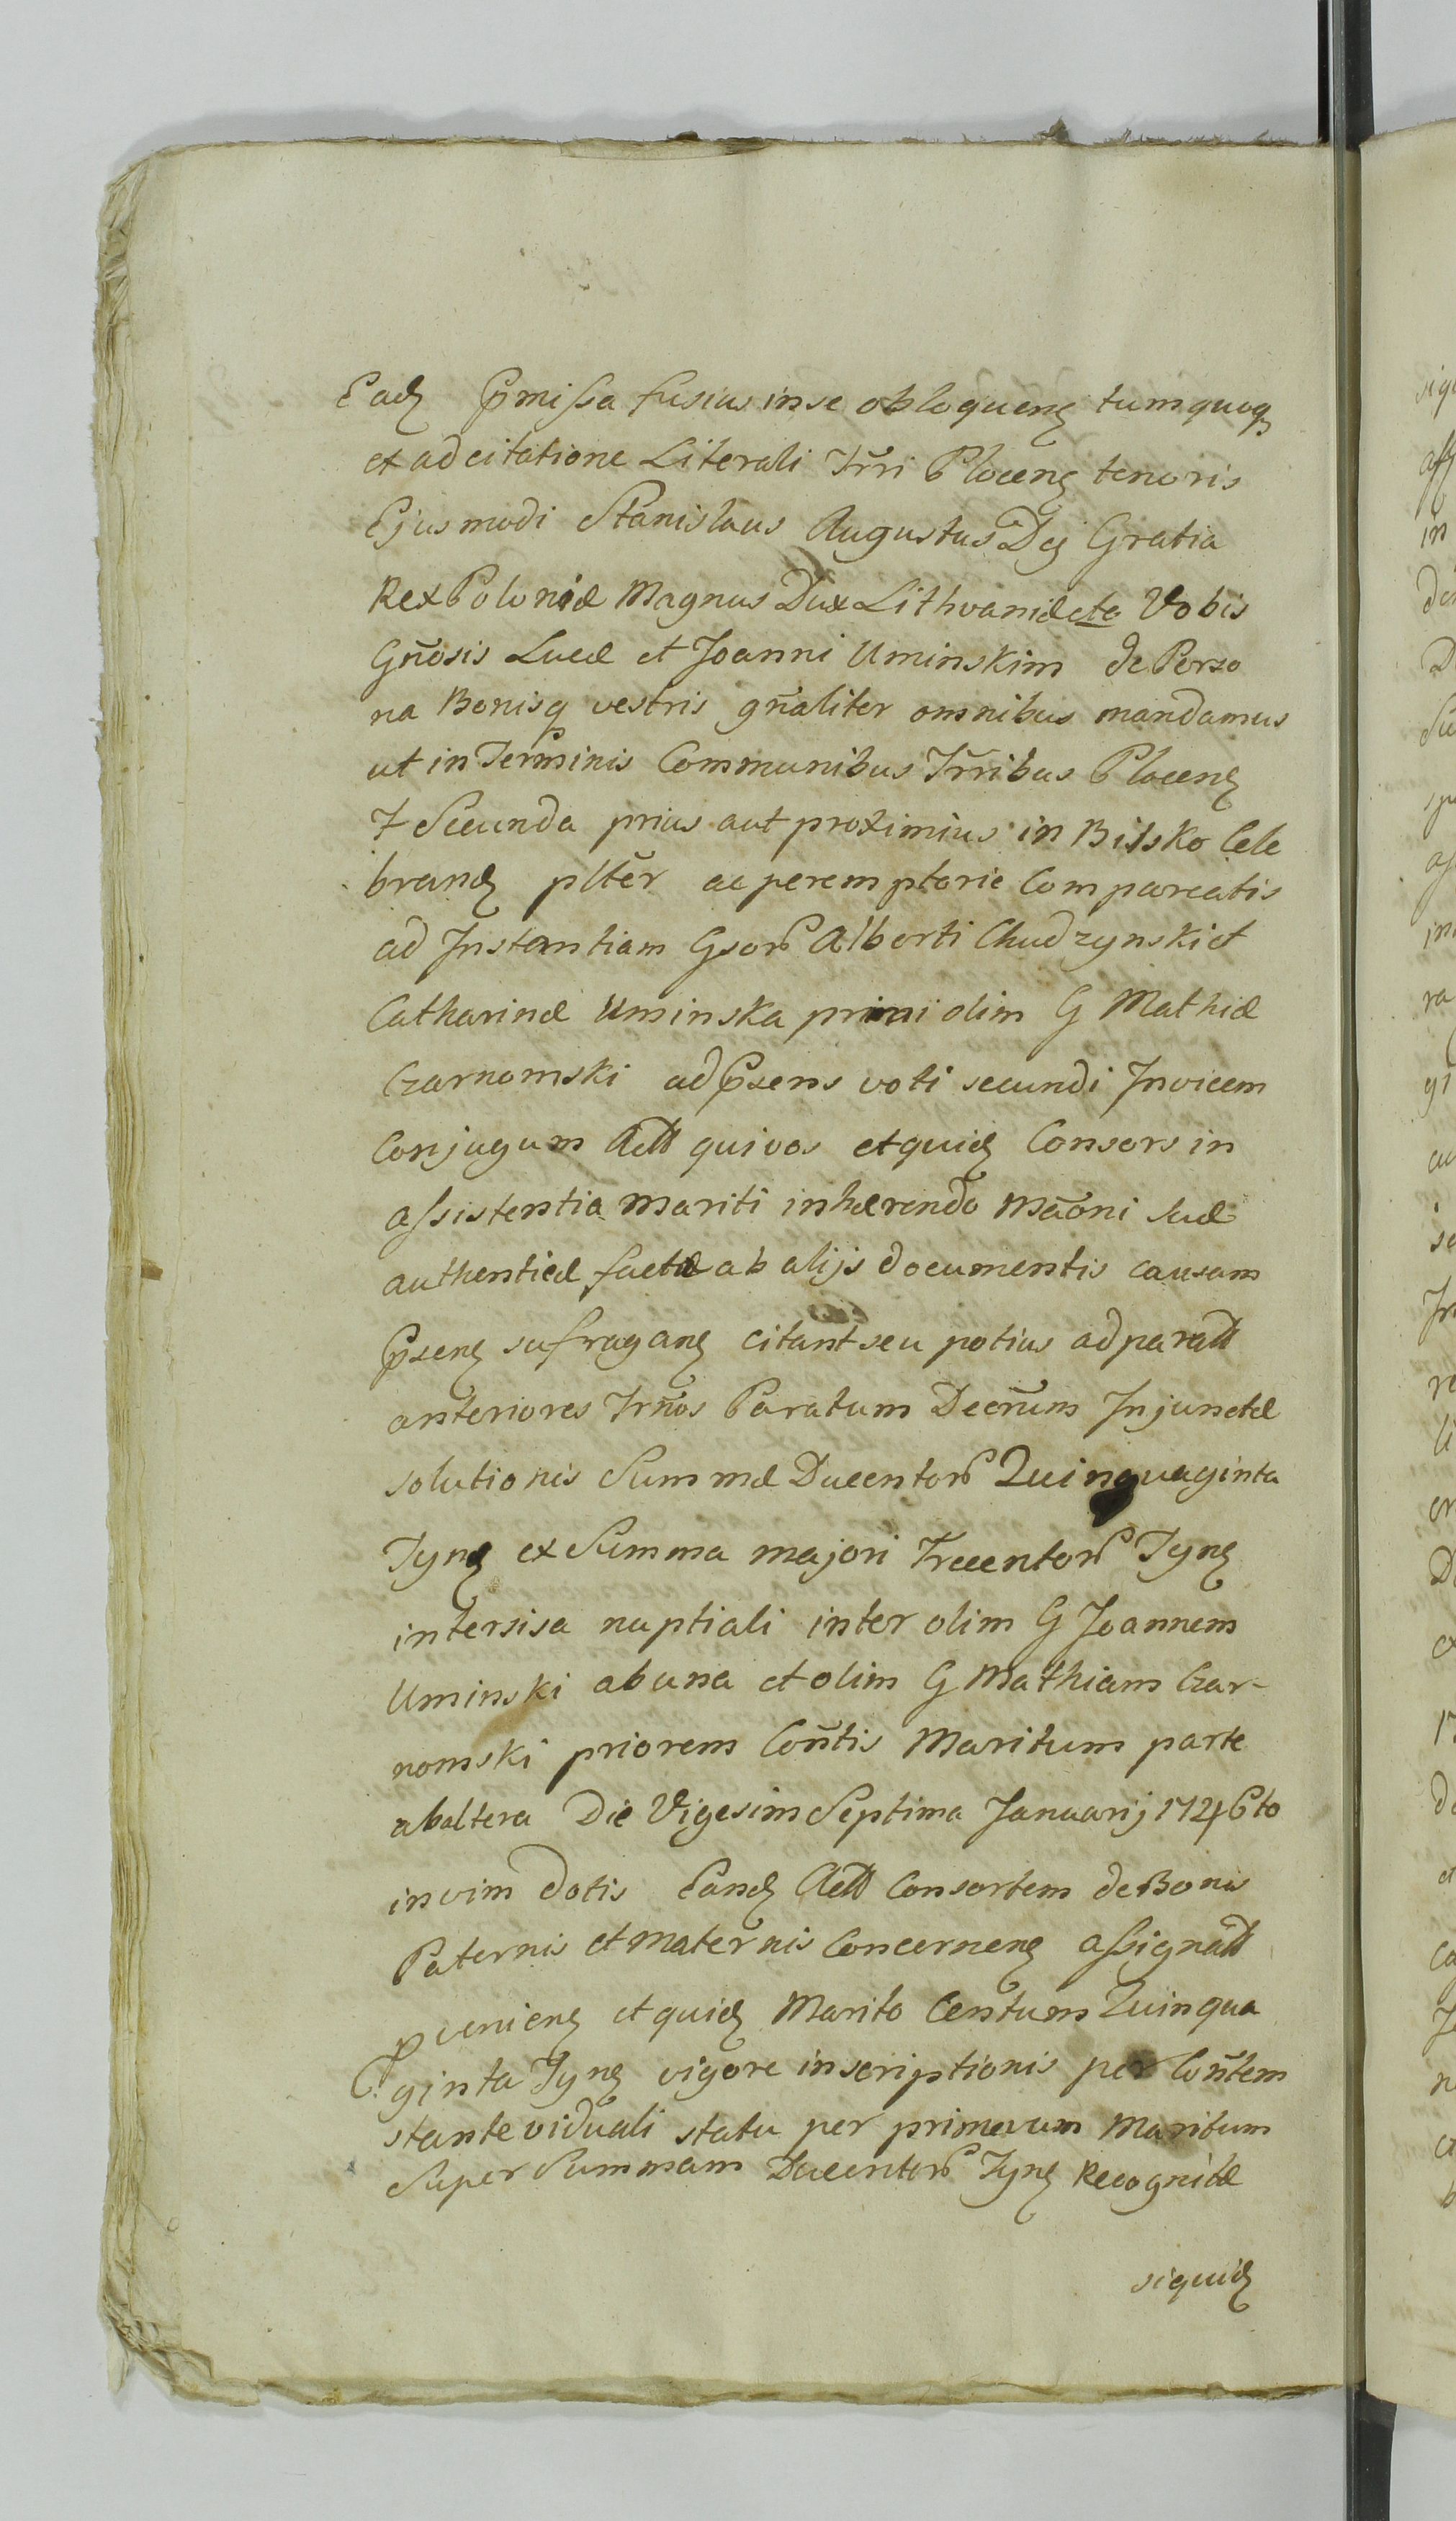 Eadꝫ Pmissa fusius in se obloquenꝫ tum quoqꝫ
et ad citatione Literali Trri Plocenꝫ tenoris
Ejusmodi Stanislaus Augustus Dei Gratia
Rex Poloniæ Magnus Dux Lithvaniæ etc Vobis
Gn̄osis Lucæ et Joanni Uminskim de Perso
na Bonisq vestris gn̄aliter omnibus mandamus
ut in Terminis Communibus Trribus Plocenꝫ
F Secunda prius aut proximius in Bilsko Cele
brandꝫ pltĕr ac peremptorie Compareatis
ad Instantiam Gsorꝭ Alberti Chudzynski et
Catharinæ Uminska primi olim G Mathiæ
Czarnomski ad Psens voti secundi Invicem
Conjugum Actt qui vos et quidꝫ Consors in
assistentia mariti inhærendo Māoni suæ
authenticæ factæ ab alijs documentis causam
Psenꝫ sufraganꝫ citant seu potius ad paratt
anteriores Trn̄os Paratum Decrūm Injunctæ
solutionis Summæ Ducentorꝭ Quinquaginta
Tynꝫ ex Summa majori Trecentorꝭ Tynꝫ
intersisa nuptiali inter olim G Joannem
Uminski ab una et olim G Mathiam Czar-
nomski priorem Con̄tis Maritum parte
ab altera Die Vigesim Septima Januarij 1746to
in vim dotis Eandꝫ Actt Consortem de Bonis
Paternis et Maternis Concernenꝫ assignatt
pvenienꝫ et quidꝫ Marito Centum Quinqua
ginta Tynꝫ vigore inscriptionis per Con̄tem
stante viduali statu per primevum Maritum
Super Summam Ducentorꝭ Tynꝫ Recognitæ
siquidꝫ